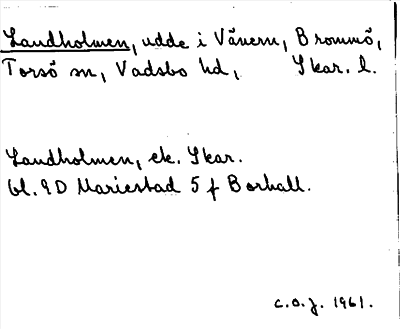 Landholmen, udde i Vänern, Brommö,
Torsö sn, Vadsbo hd, Skar. l.
Landholmen, ek. Skar.
bl. 9D Mariestad 5 f Borhall.
c.o.j. 1961.